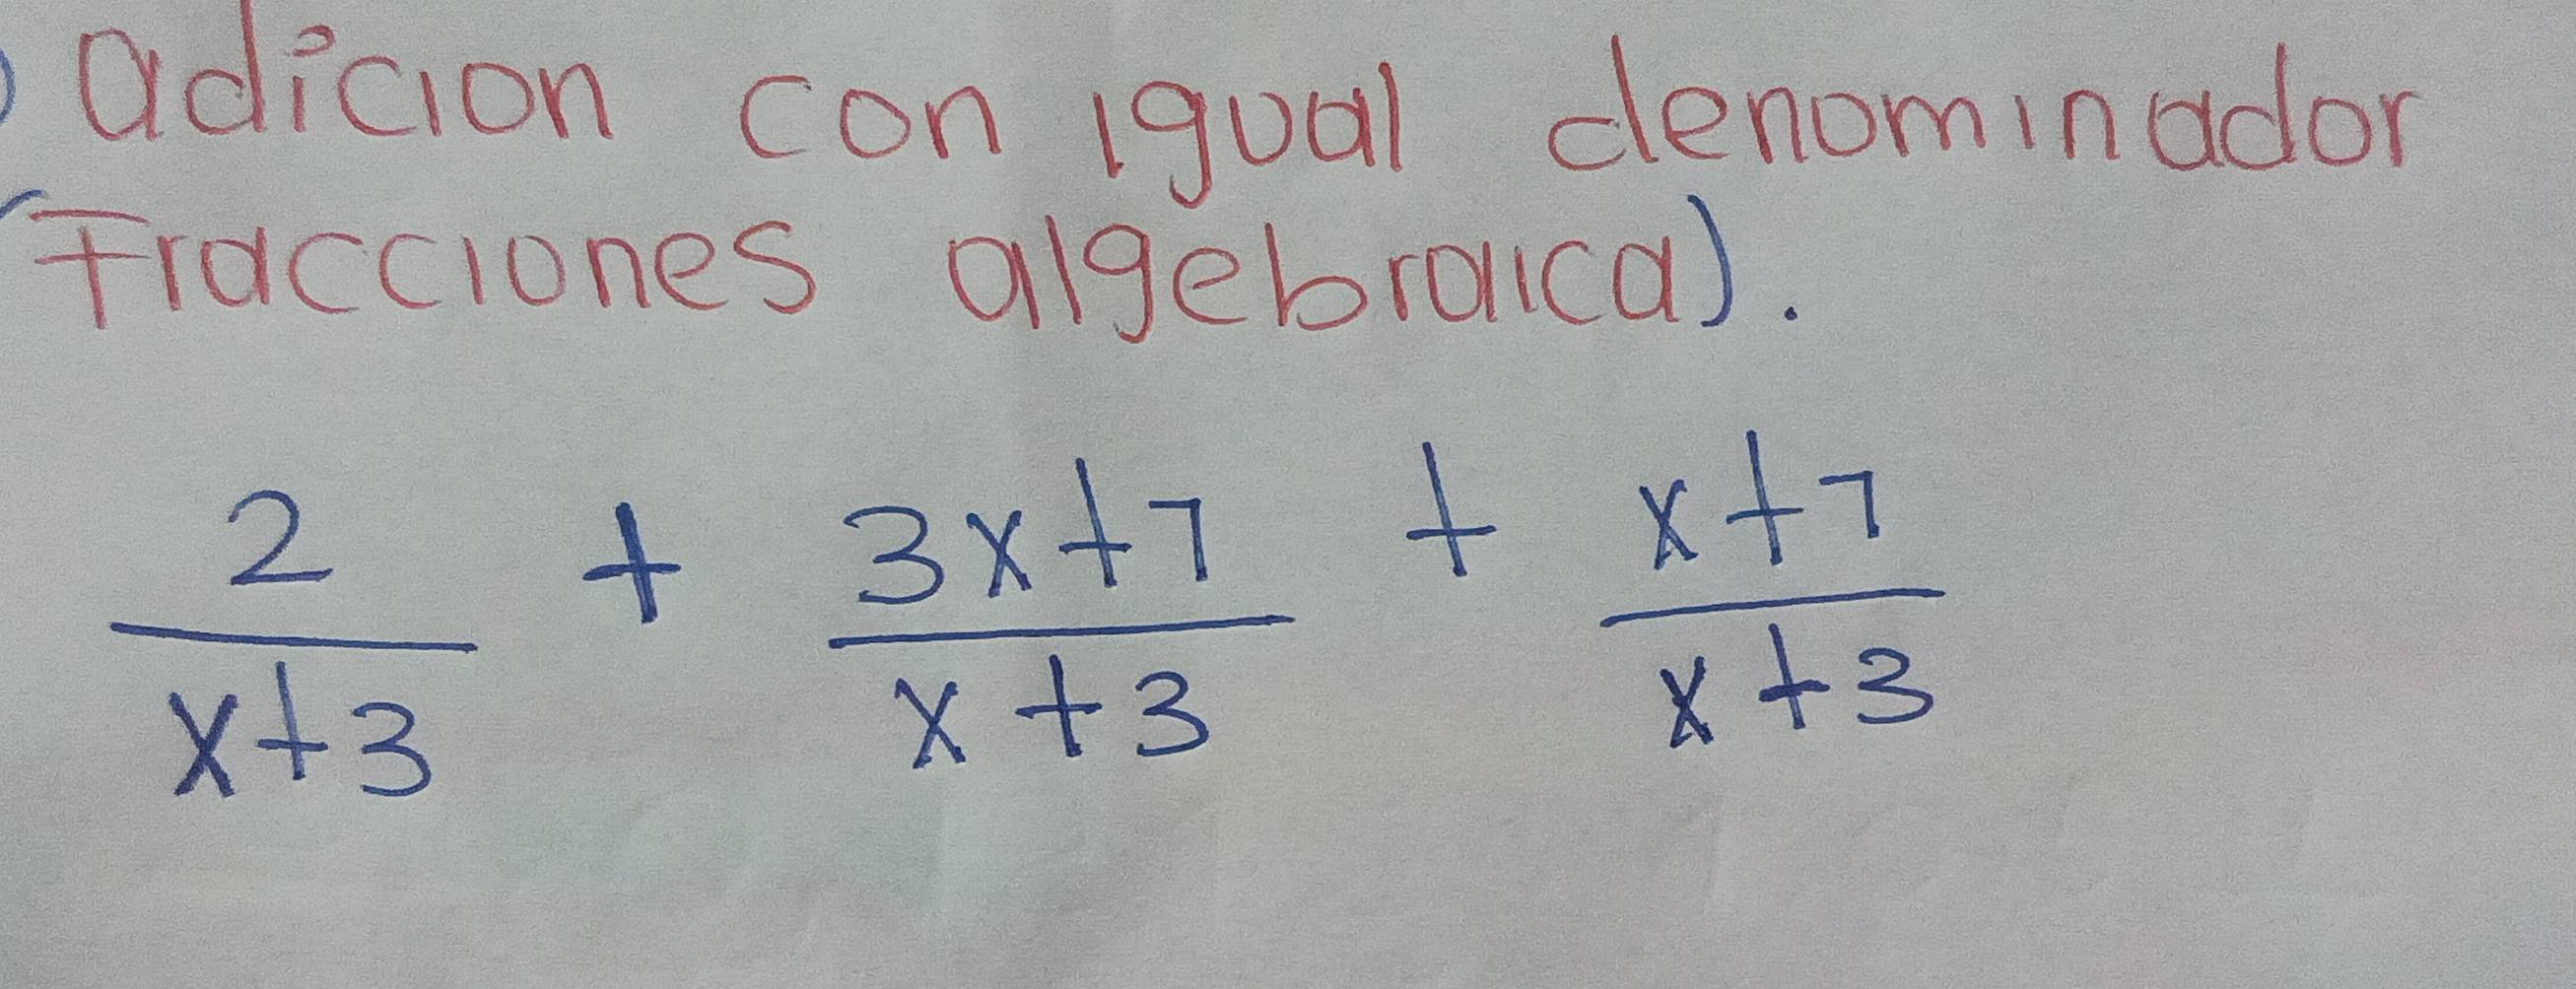 ) adicion con igual denominador
(Fracciones algebraica).
2 + 3x+7 + x+7
x+3 x+3 x+3